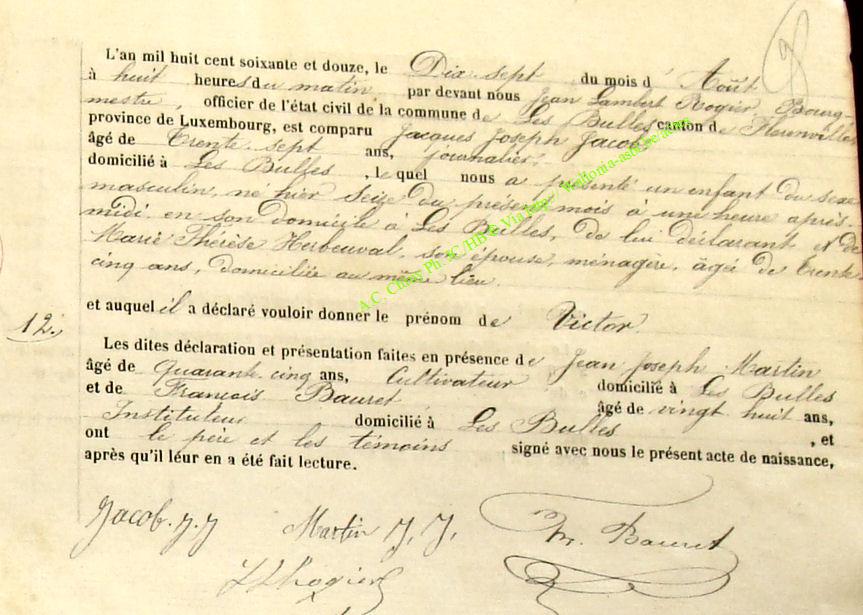 L'an mil huit cent soixante et douze, le Dix sept du mois d' Août
à huit heures du matin par devant nous Jean Lambert Rogier, Bourg-
mestre, officier de l'état civil de la commune de Les Bulles canton de Florenville
province de Luxembourg, est comparu Jacques Joseph Jacob
âgé de Trente sept ans, journalier,
domicilié à Les Bulles, lequel nous a présenté un enfant du sexe
masculin, né hier seize du présent mois à une heure après-
midi en son domicile à Les Bulles, de lui déclarant et de
Marie Thérèse Herbeuval, son épouse, ménagère, âgée de trente
cinq ans, domiciliée au même lieu.
et auquel il a déclaré vouloir donner le prénom de Victor
12.
Les dites déclaration et présentation faites en présence de Jean Joseph Martin
âgé de Quarante cinq ans, Cultivateur domicilié à Les Bulles
et de François Bauret, âgé de vingt huit ans,
Instituteur domicilié à Les Bulles, et
ont le père et les témoins signé avec nous le présent acte de naissance,
après qu'il léur en a été fait lecture.
Jacob. J. J Martin J. J. Bauret
Rogier
A.C. Chiny Ph JC/HB & Via